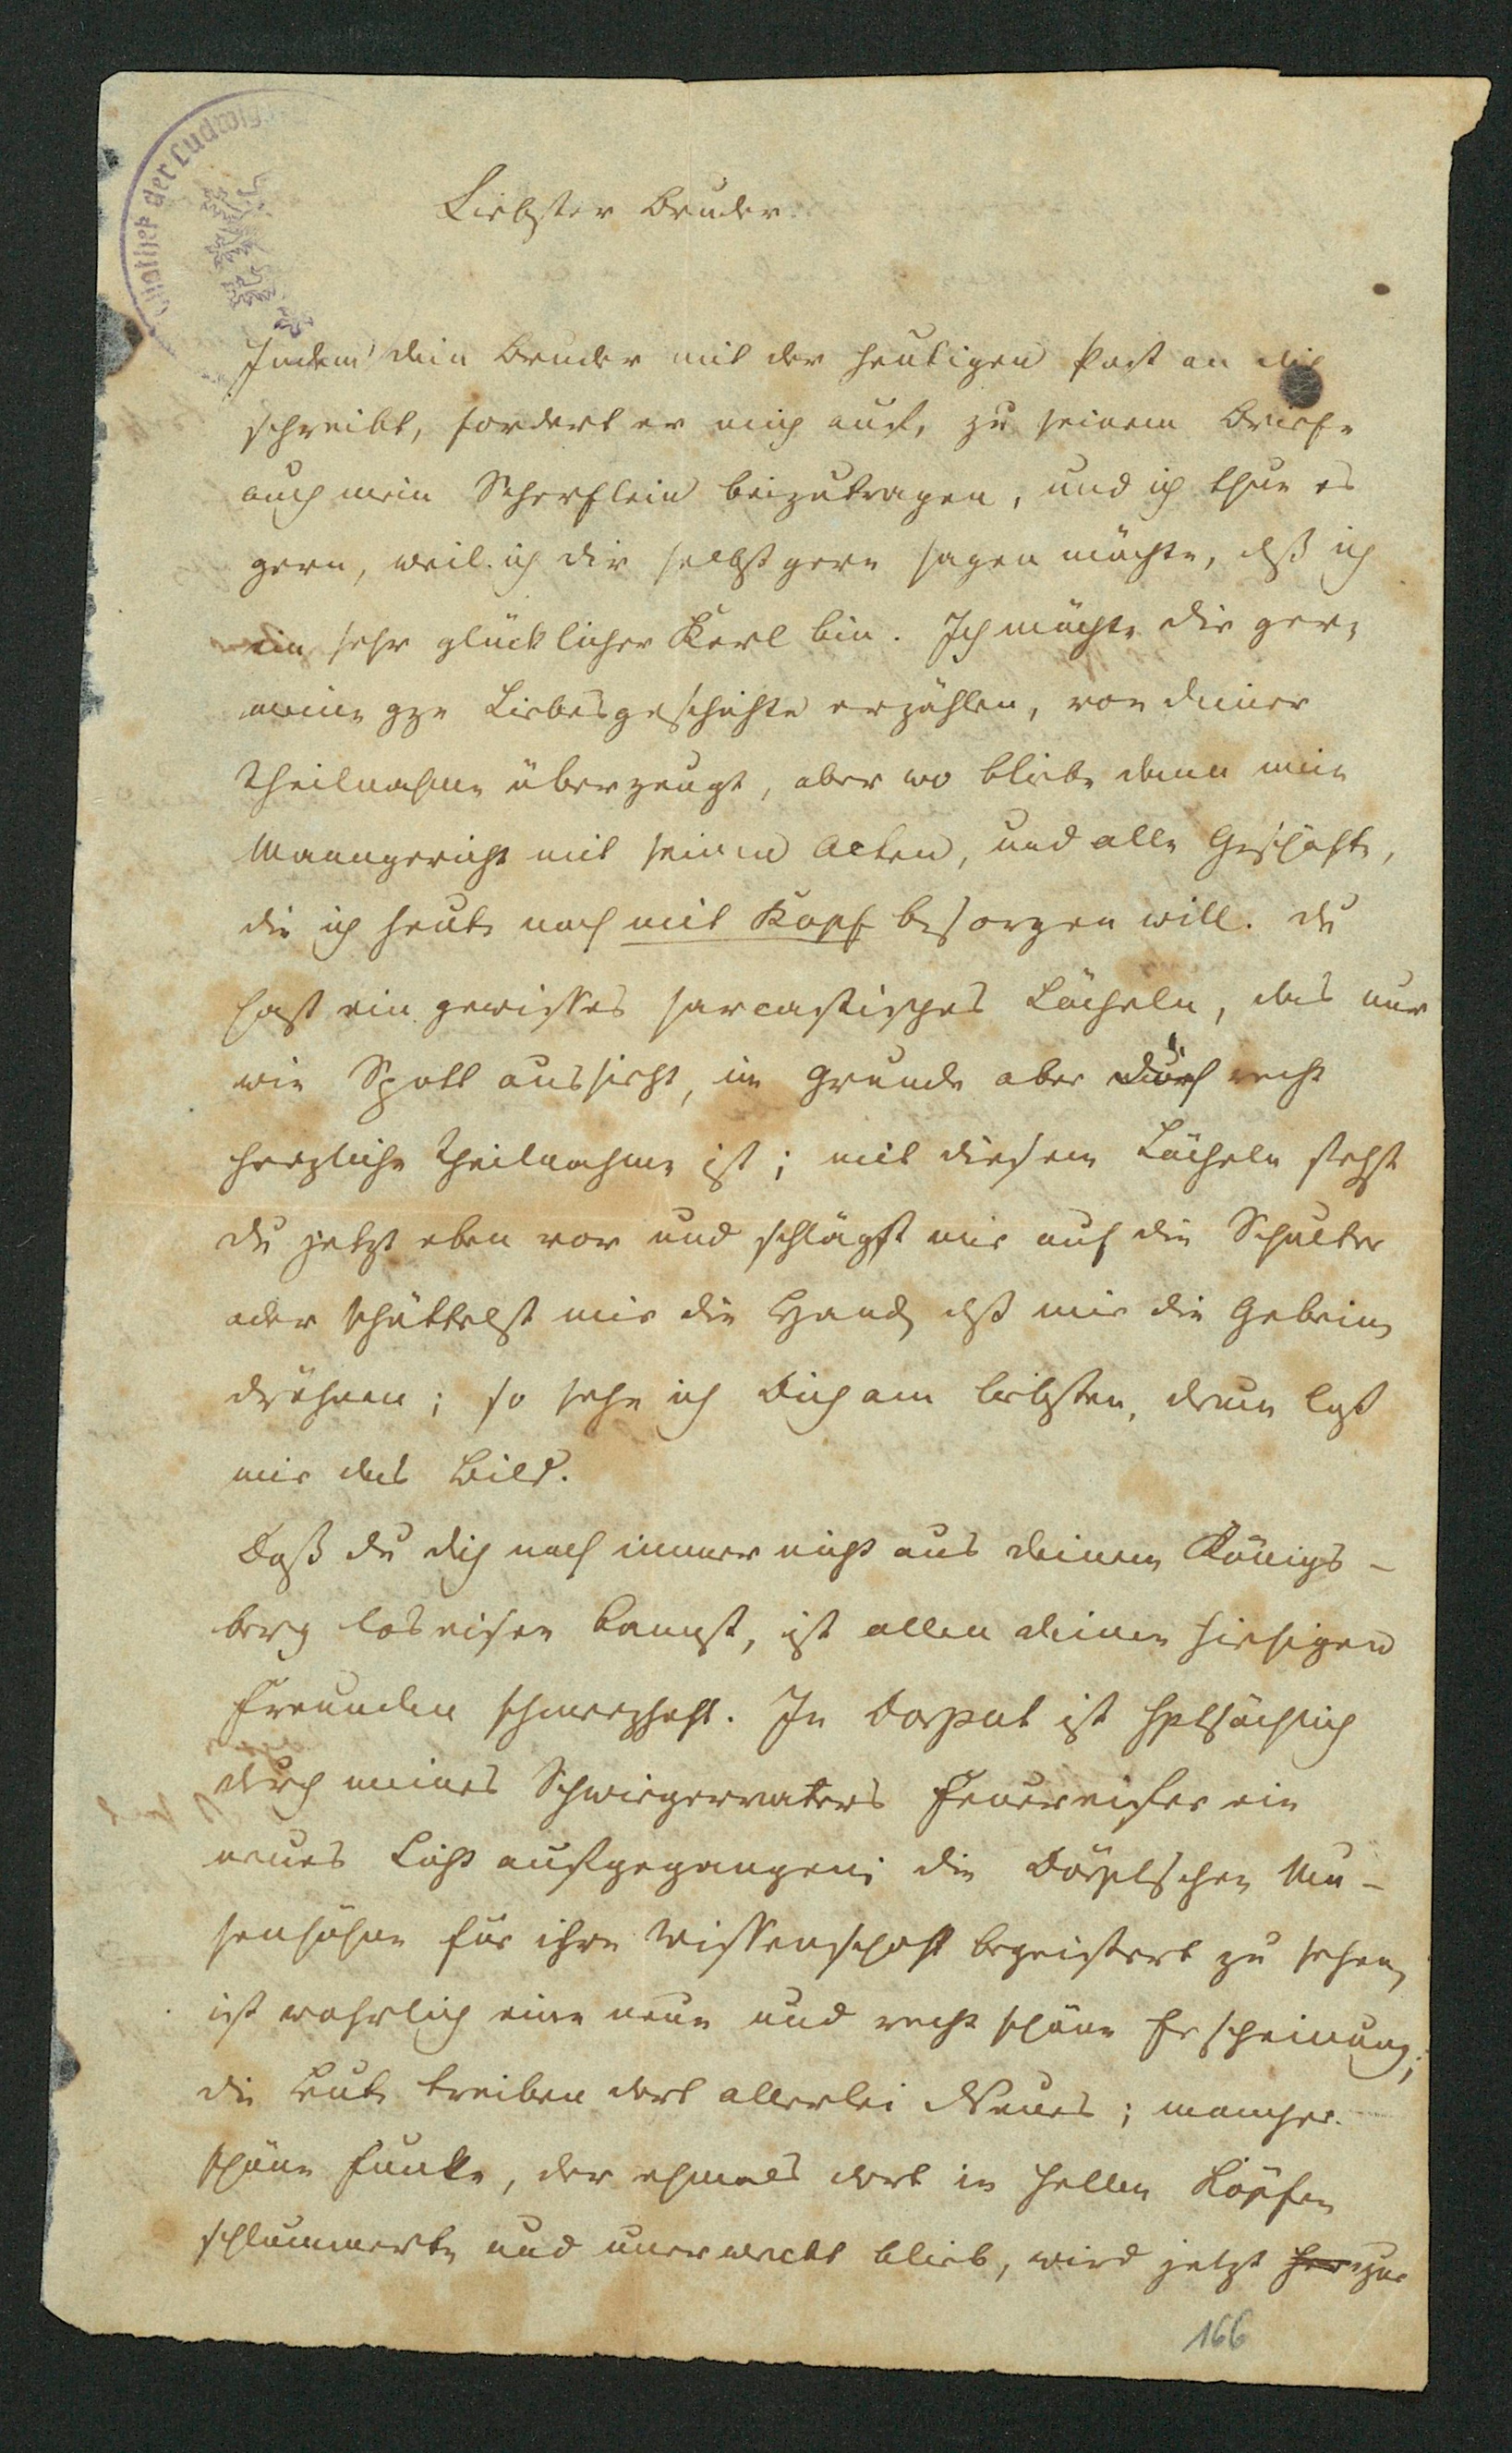 thek der Ludwigs
Liebster Bruder.
Indem dein Bruder mit der heutigen Post an dich
schreibt, fordert er mich auf, zu seinem Briefe
auch mein Scherflein beizutragen, und ich thue es
gern, weil ich dir selbst gern sagen möchte, dß ich
ein sehr glücklicher Kerl bin. Ich möchte dir gern
meine gze Liebesgeschichte erzählen, von deiner
Theilnahme überzeugt, aber wo bliebe denn mein
Manngericht mit seinen Acten, und alle Geschäfte,
die ich heute noch mit Kopf besorgen will. Du
hast ein gewisses sarcastisches Lächeln, das nur
wie Spott aussieht, im Grunde aber doch recht
herzliche Theilnahme ist; mit diesem Lächeln stehst
du jetzt eben vor und schlägst mir auf die Schulter
oder schüttelst mir die Hand, dß mir die Gebeine
dröhnen; so sehe ich Dich am liebsten, drum laß
mir das Bild.
Daß du dich noch immer nicht aus deinem Königs-
berg loseisen kannst, ist allen deinen hiesigen
Freunden schmerzhaft. In Dorpat ist hptsächlich
durch meines Schwiegervaters Feuereifer ein
neues Licht aufgegangen; die Dörptschen Mu-
sensöhne für ihre Wissenschaft begeistert zu sehen,
ist wahrlich eine neue und recht schöne Erscheinung;
die Leute treiben dort allerlei Neues; mancher
schöne Funke, der ehmals dort in hellen Köpfen
schlummerte und unerweckt blieb, wird jetzt her zur
166